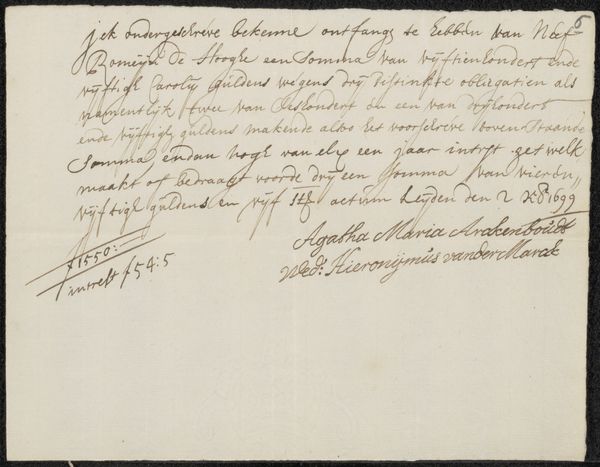 6
jek ondergeschreve bekenne ontfangs te hebben van Neef
Romeijn De Hooghe een Somma van vyftienhondert ende
vyftigh Caroly guldens wegens drij distinkte obligatien als
namentlijk twee van seshondert en een van drijhondert
ende vyftigh guldens makende alsoo het voorschreve boven staande
Somma, endan nogh van elx een jaar intrest het welk
maakt of bedraagt voorde drij een somma van vieren
vyftigh guldens en vyf actum Leyden den 2 1699
Agatha Maria Arckenboudt
Wed: Hieronijmus vander Marck
f 1550:-
intrest f 54:5